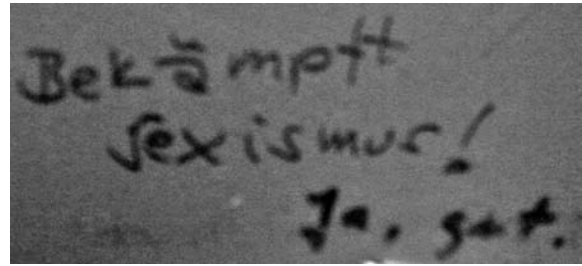 Bekämpft
Sexismus!
Ja, gut.